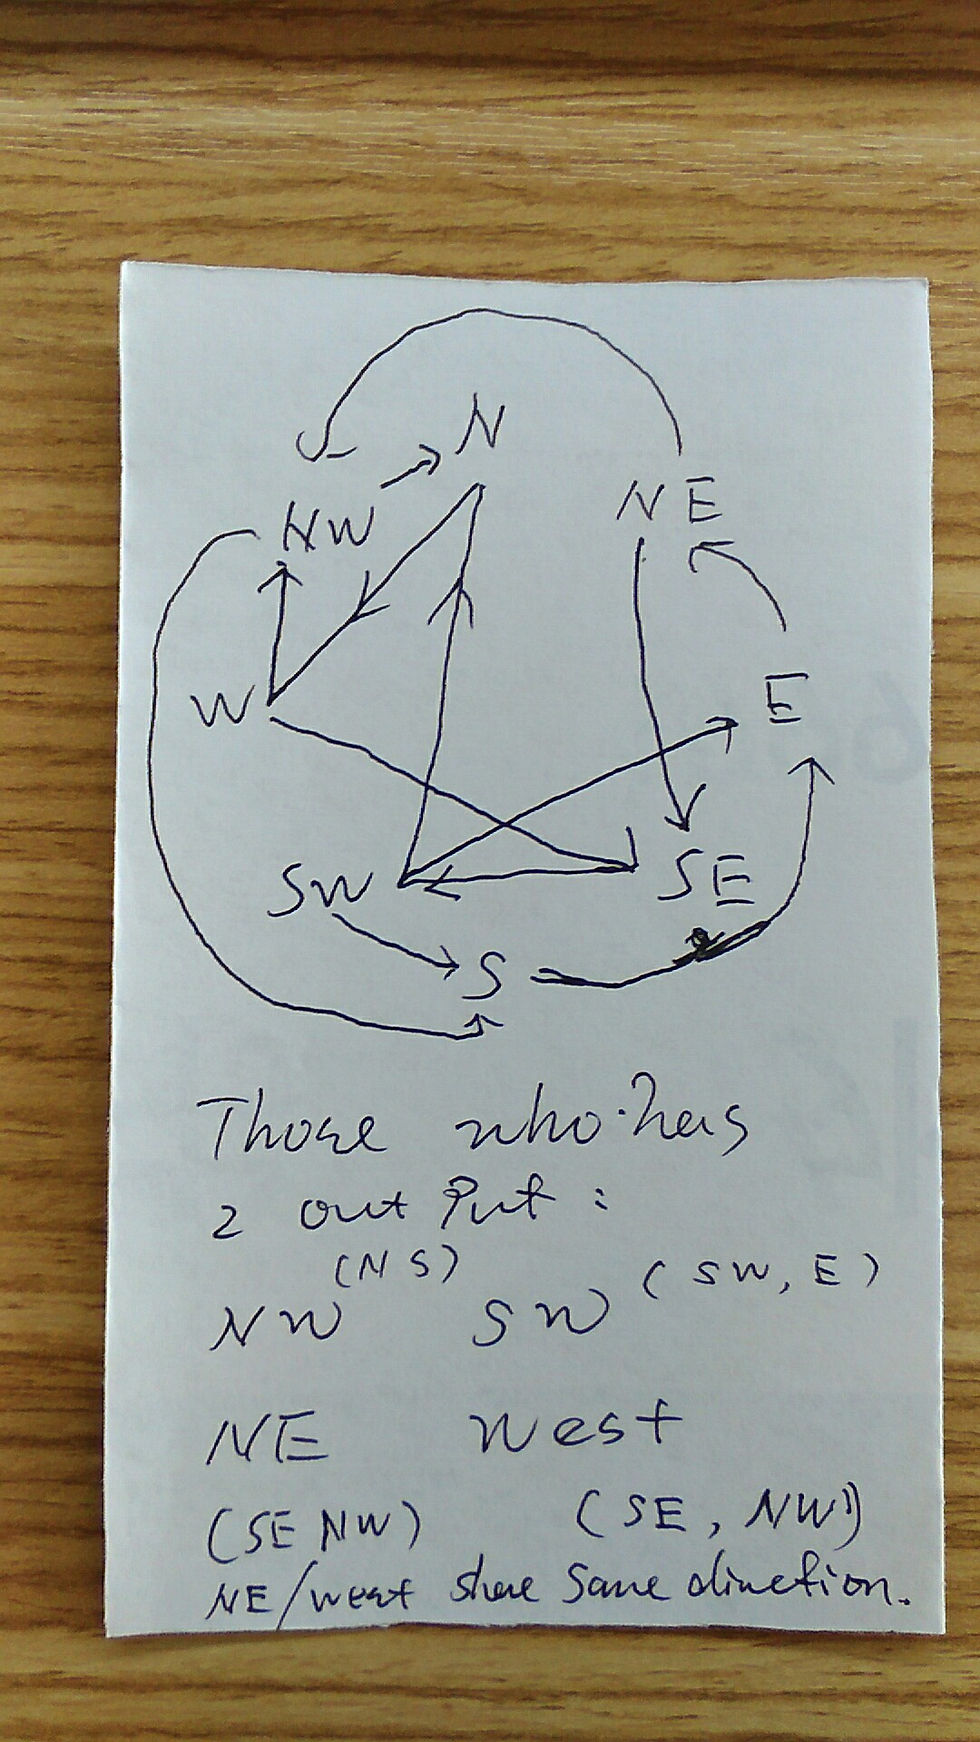 N
NW
NE
W
E
SW
SE
S
Those who has
2 out Put :
(N S) (SW, E)
NW SW
NE west
(SE NW) (SE, NW)
NE/west share same direction.